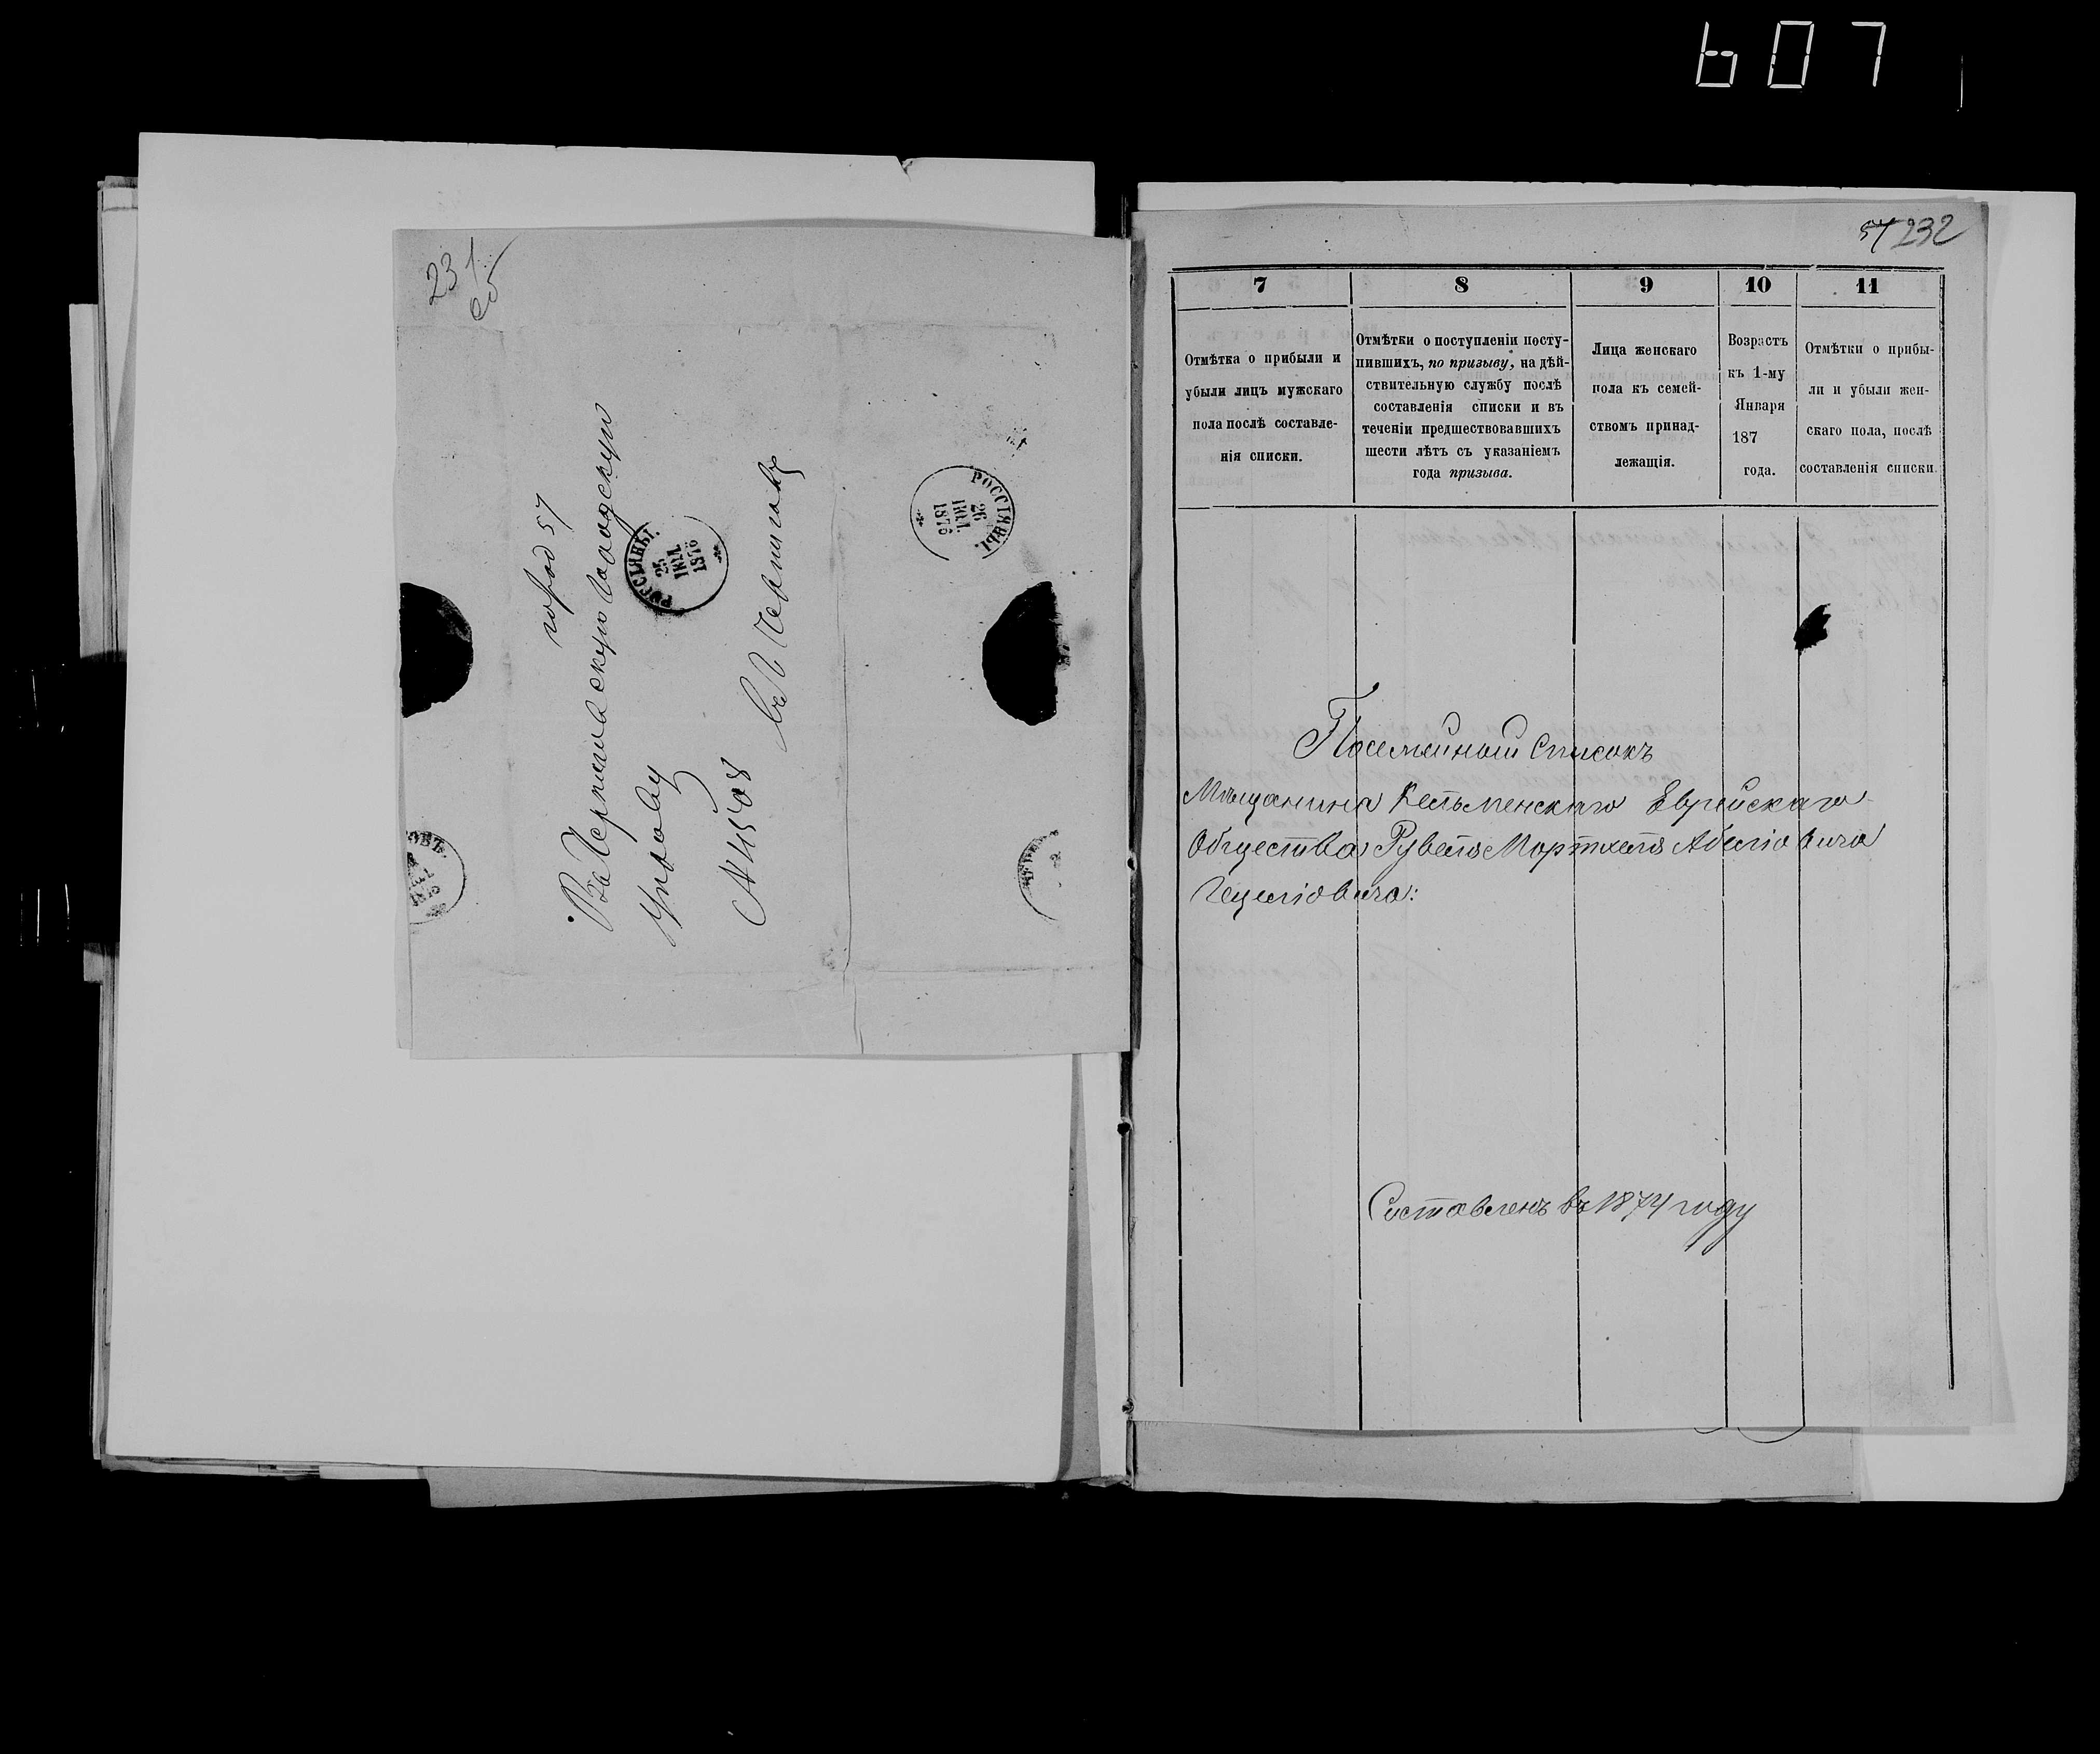 607
231
об
город 57
Въ Черниговскую Городскую
Управу
№ 4508
въ Черниговъ
РОССІЯНЫ.
25
ІЮЛ.
1876
РОССІЯНЫ.
26
ІЮЛ.
1876
57 232
7
8
9
10
11
Отмѣтка о прибыли и
убыли лицъ мужскаго
пола послѣ составле-
нія списки.
Отмѣтки о поступленіи посту-
пившихъ, по призыву, на дѣй-
ствительную службу послѣ
составленія списки и въ
теченіи предшествовавшихъ
шести лѣтъ съ указаніемъ
года призыва.
Лица женскаго
пола къ семей-
ствомъ принад-
лежащія.
Возрастъ
къ 1-му
Января
187
года.
Отмѣтки о прибы-
ли и убыли жен-
скаго пола, послѣ
составленія списки.
Посемейный Списокъ
Мѣщанина Кельменскаго Еврейскаго
Общества Рувеля Мортхеля Абелiовича
Гецелiовича:
Составленъ въ 1874 году